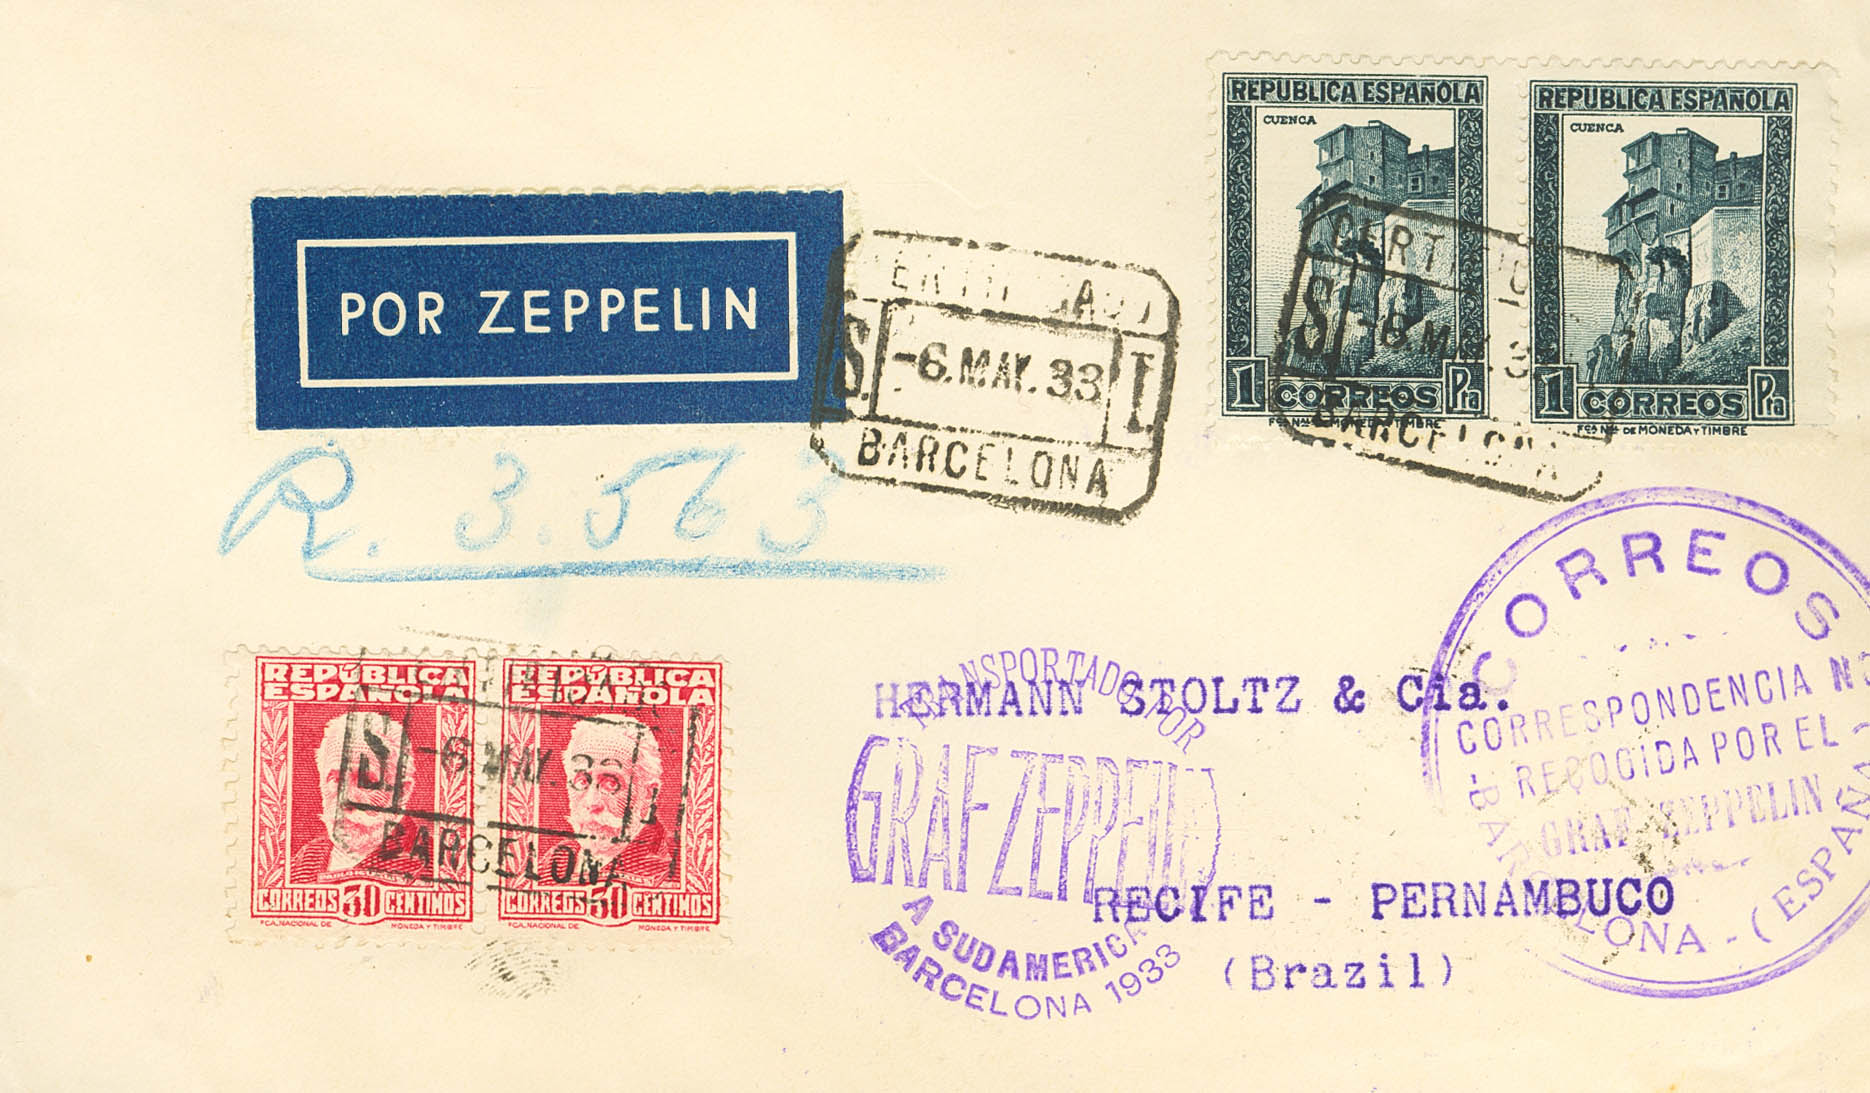 REPUBLICA ESPAÑOLA
CUENCA
1 CORREOS Pta
Fca Nal DE MONEDA Y TIMBRE
REPUBLICA ESPAÑOLA
CUENCA
1 CORREOS Pta
Fca Nal DE MONEDA Y TIMBRE
POR ZEPPELIN
CERTIFICADO
S. -6.MAY.33 I.
BARCELONA
CERTIFICADO
S. -6.MAY.3
BARCELONA
R. 3.563
REPÚBLICA
ESPAÑOLA
CORREOS 30 CENTIMOS
FCA.NACIONAL DE MONEDA Y TIMBRE
REPÚBLICA
ESPAÑOLA
CORREOS 30 CENTIMOS
FCA.NACIONAL DE MONEDA Y TIMBRE
S. -6.MAY.33 I.
BARCELONA
HERMANN STOLTZ & Cia.
RECIFE - PERNAMBUCO
(Brazil)
TRANSPORTADO POR
GRAF ZEPPELIN
A SUDAMERICA
BARCELONA 1933
CORREOS
CORRESPONDENCIA NO
RECOGIDA POR EL
GRAF ZEPPELIN
-BARCELONA-(ESPAÑA)